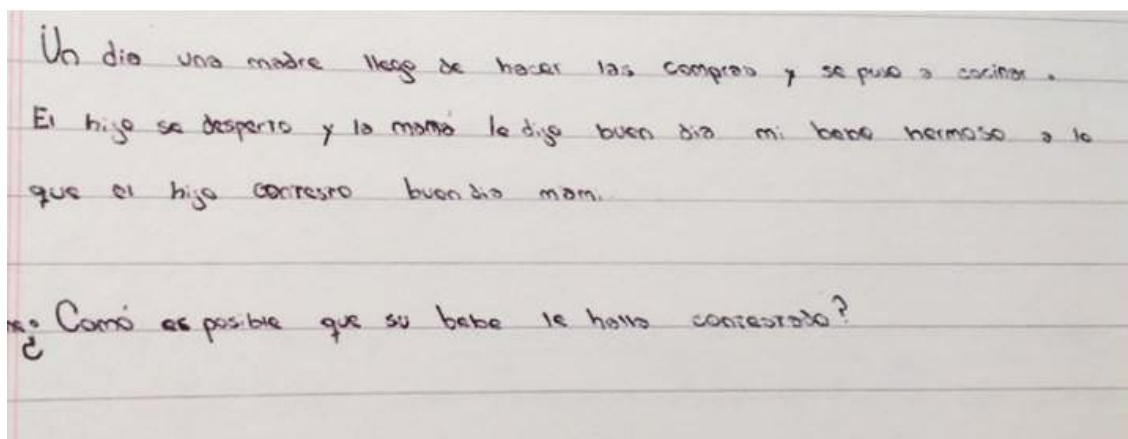 Un dia una madre llego de hacer las compras y se puso a cocinar.
El hijo se desperto y la mamá le dijo buen dia mi bebe hermoso a lo
que el hijo contesto buen dia mami.
¿Comó es posible que su bebe le halla contestado?